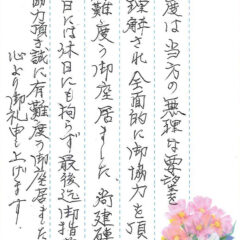 度は当方の無理な要望を
理解され全面的に御協力を頂
難度う御座居ました、尚建碑
日には休日にも拘らず最後迄御指
協力頂き誠に有難度う御座居ました
心より御礼申し上げます.